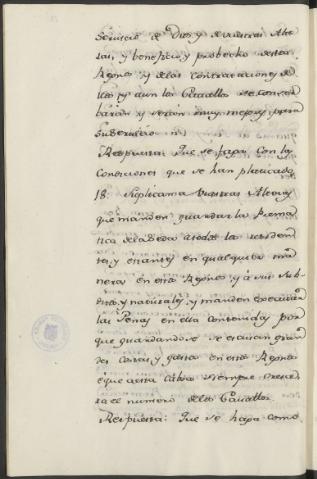 servicio de Dios y de vuestras Alte
zas, y beneficio y probecho destos
Reynos y delas contractaciones de
llos, y aun los Cavallos se conser
baran y serian muy mejores para
su servicio
Respuesta: Que se faga con las
Condiciones que se han platicado
18. Suplicamos a vuestras Altezas
que manden guardar la Prema
tica dela Seda a todos los residen
tes, y estantes en qualquier ma
nera en estos Reynos y a sus Sub
ditos, y naturales, y manden executar
las Penas en ella contenidas por
que guardandose se escusan gran
des costas, y gastos en estos Reynos
é que a esta Cabsa siempre crecera
ra el numero delos Cavallos
Respuesta: Que se haga como